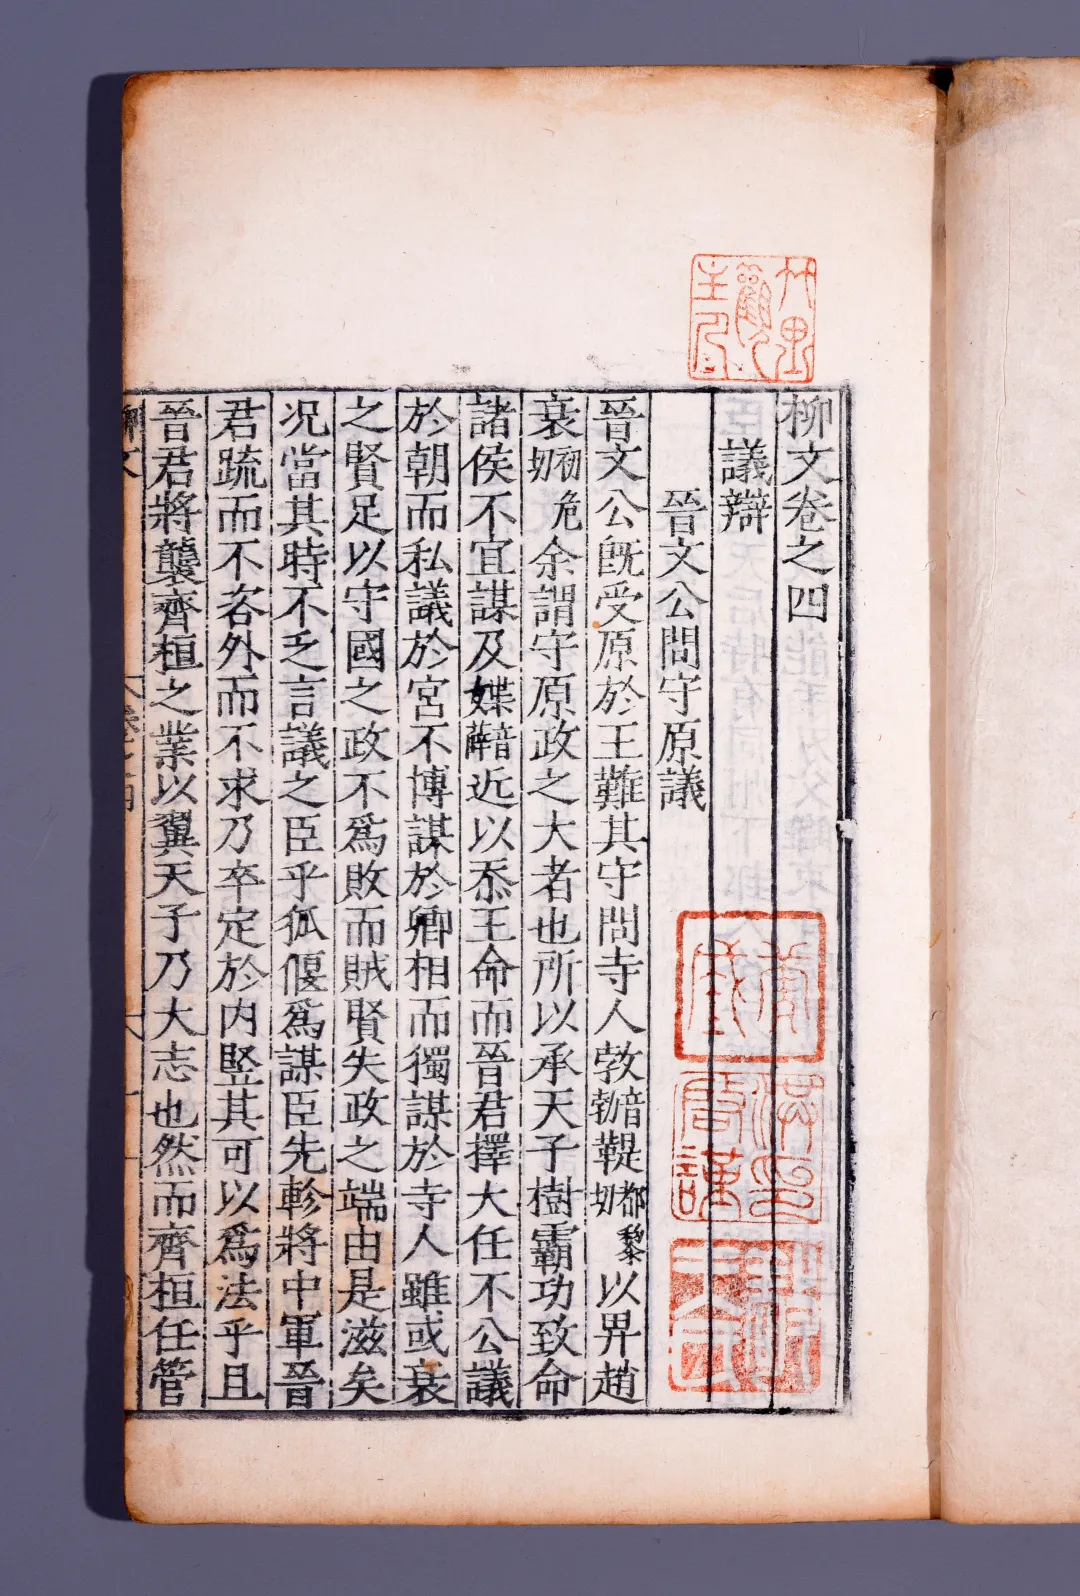 柳文卷之四
議辯
晉文公問守原議
晉文公既受原於王難其守問寺人敦音勃鞮都黎切以畀趙
衰初危切余謂守原政之大者也所以承天子樹霸功致命
諸侯不宜謀及媟音薛近以忝王命而晉君擇大任不公議
於朝而私議於宮不博謀於卿相而獨謀於寺人雖或衰
之賢足以守國之政不爲敗而賊賢失政之端由是滋矣
况當其時不乏言議之臣乎狐偃爲謀臣先軫將中軍晉
君疏而不咨外而不求乃卒定於内竪其可以爲法乎且
晉君將襲齊桓之業以翼天子乃大志也然而齊桓任管